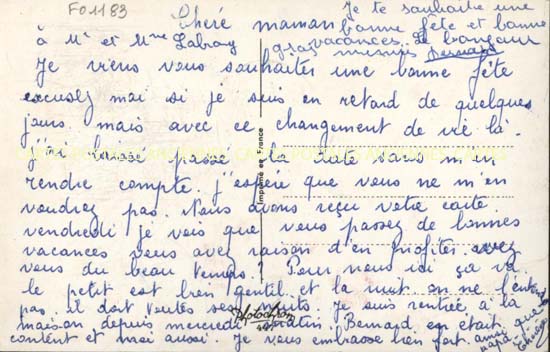 F01183
Je te souhaite une
Chéré maman bonne fête et bonne
à Mr et Mme vacances. Le bonjour
gros mimis Bernard
Je viens vous souhaiter une bonne fête
excusez moi si je suis en retard de quelques
jours. mais avec ce changement de vie là.
j'ai laissé passé la date sans m'en
rendre compte. j'espère que vous ne m'en
voudrez pas. Nous avons reçu votre carte
vendredi je vois que vous passez de bonnes
vacances vous avez raison d'en profiter avez
vous du beau temps. Pour nous ici ça va
le petit est bien gentil et la nuit on ne l'entend
pas il dort toutes ses nuits. Je suis rentrée à la
maison depuis mercredi matin. Bernard en était
content et moi aussi. Je vous embrasse bien fort ainsi que
papa
Imprimé en France
Photochrom